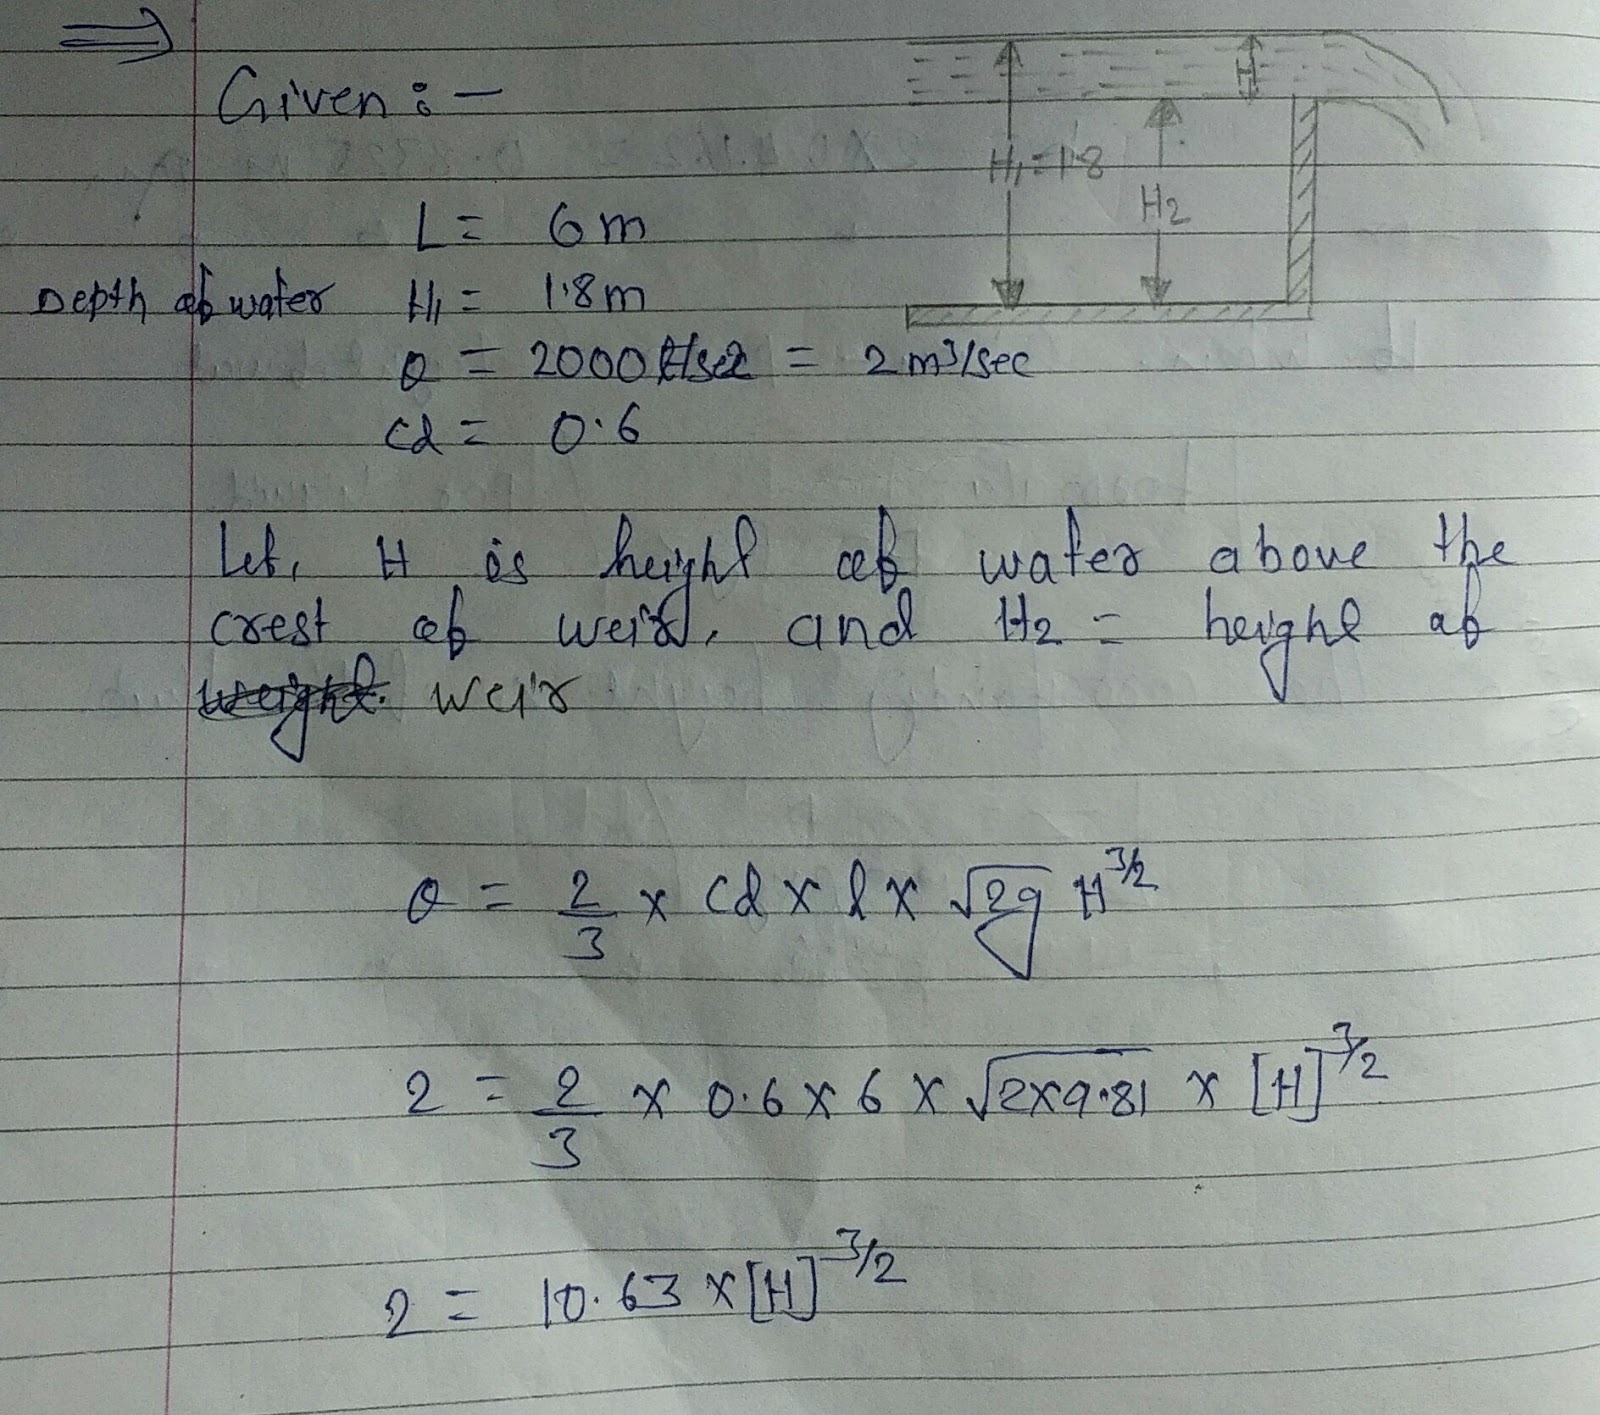 Given :-
H
H1 = 1.8
H2
L = 6m
Depth of water H1 = 1.8m
Q = 2000 lt/sec = 2 m³/sec
Cd = 0.6
Let, H is height of water above the
crest of weir, and H2 = height of
weight. weir
Q = 2/3 × Cd × l × √2g H^3/2
2 = 2/3 × 0.6 × 6 × √2×9.81 × [H]^3/2
2 = 10.63 × [H]^3/2